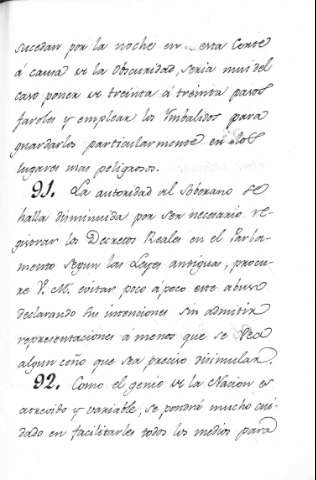 sucedan por la noche en esta Corte
á causa de la Obscuridad, seria mui del
caso poner de treinta á treinta pasos
faroles y emplear los Imbalidos para
guardarlos particularmente en los
lugares mas peligrosos.
91. La autoridad del Soberano se
halla disminuida por ser necesario re-
gistrar los Decretos Reales en el Parla-
mento segun las Leyes antiguas, procu-
re V. M. evitar poco á poco este abuso
declarando sus intenciones sin admitir
representaciones á menos que se vea
algun ceño que sea preciso disimular.
92. Como el genio de la Nacion es
atrevido y variable, se pondrá mucho cui-
dado en facilitarles todos los medios para